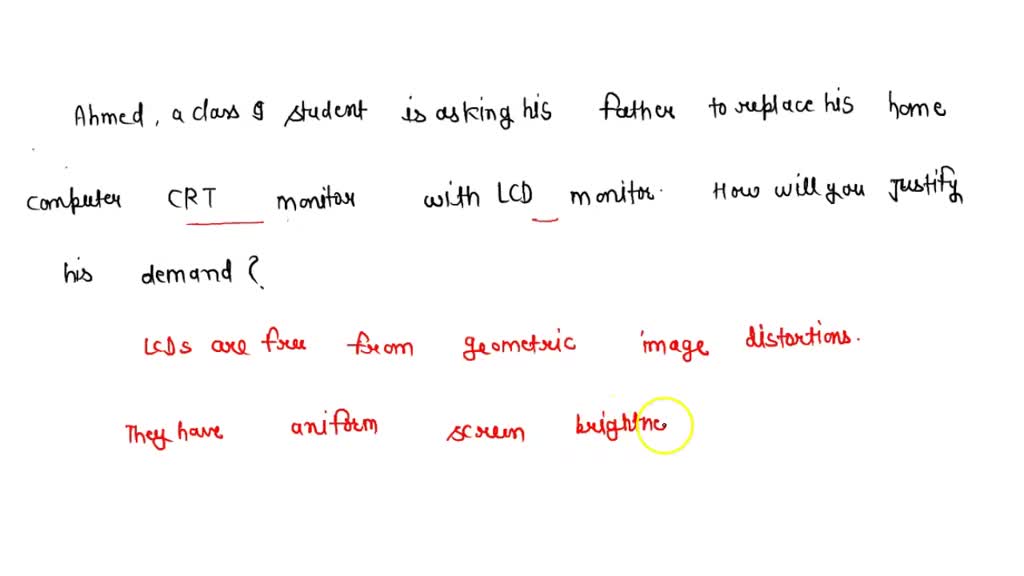 Ahmed, a class 9 student is asking his father to replace his home
computer CRT monitor with LCD monitor. How will you justify
his demand?
LCDs are free from geometric image distortions.
They have uniform screen brightne